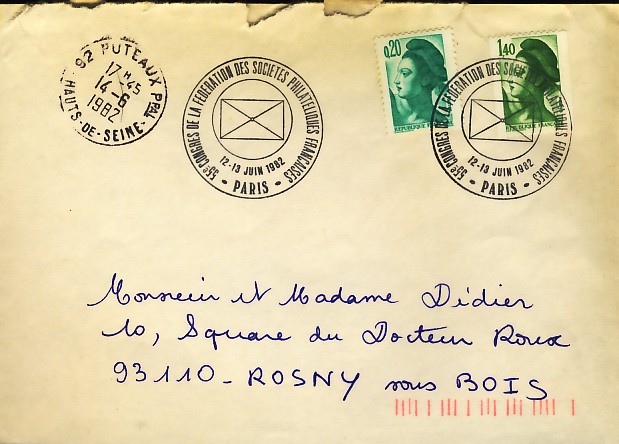 92 PUTEAUX Ppal
17H45
14-6
1982
HAUTS-DE-SEINE-
55e CONGRES DE LA FEDERATION DES SOCIETES PHILATELIQUES FRANÇAISES
12-13 JUIN 1982
- PARIS -
0,20
REPUBLIQUE FRANC
1,40
REPUBLIQUE FRANC
55e CONGRES DE LA FEDERATION DES SOCIETES PHILATELIQUES FRANÇAISES
12-13 JUIN 1982
- PARIS -
Monsieur et Madame Dídier
10, Square du Docteur Roux
93110-ROSNY sous BOIS